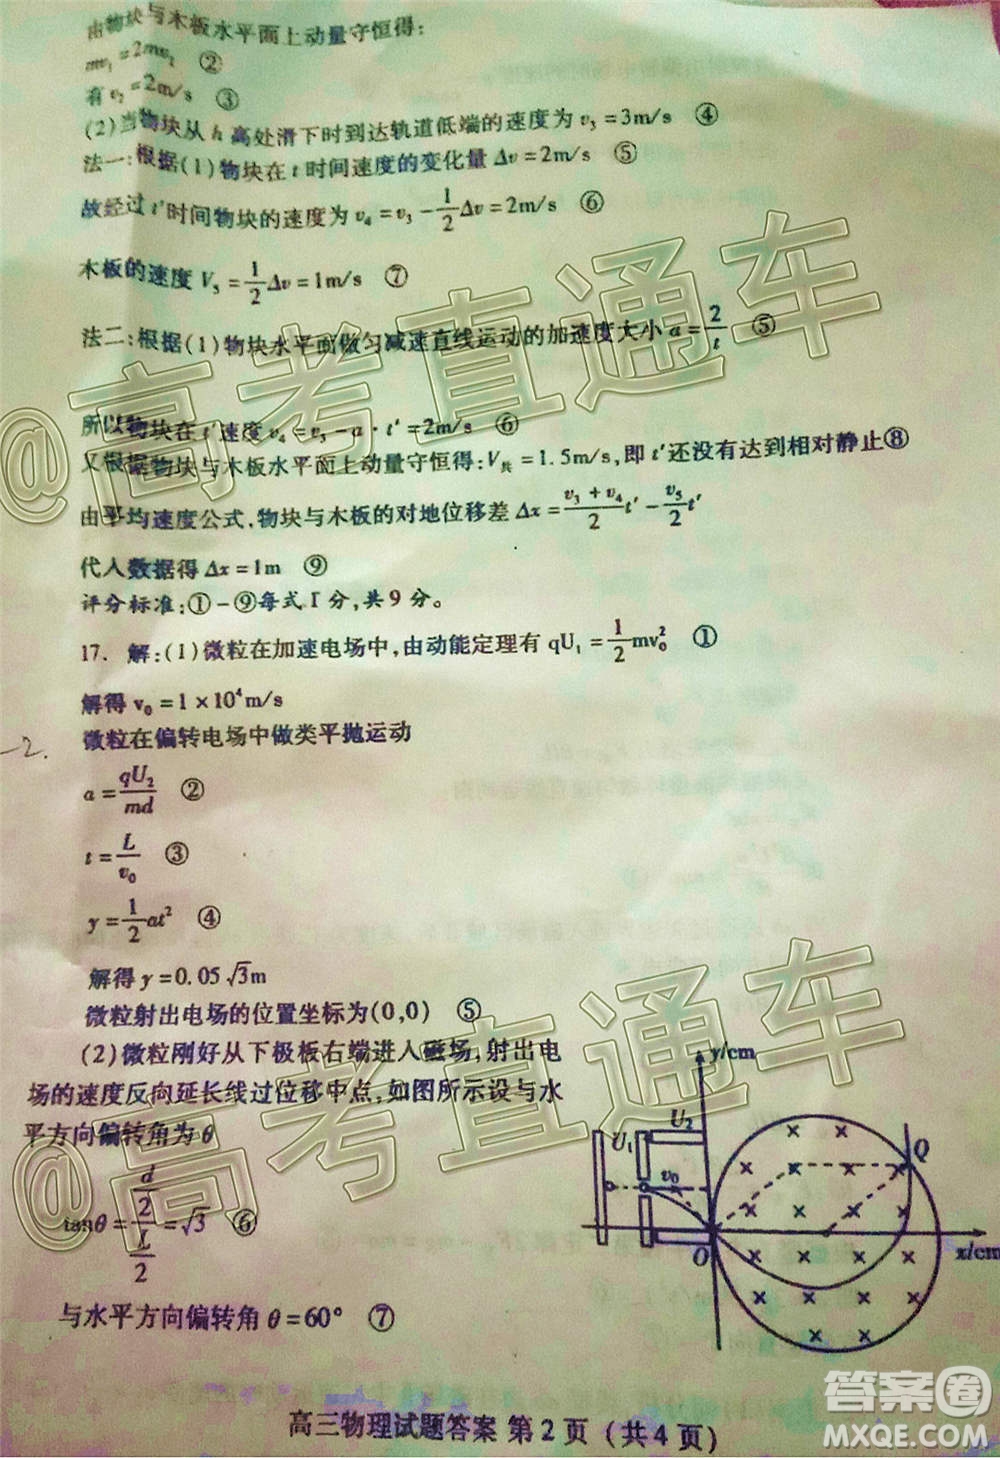 由物块与木板水平面上动量守恒得:
mv₁=2mv₂ ②
有v₂=2m/s ③
(2)当物块从h高处滑下时到达轨道低端的速度为v₃=3m/s ④
法一:根据(1)物块在t时间速度的变化量Δv=2m/s ⑤
故经过t′时间物块的速度为v₄=v₃-1/2Δv=2m/s ⑥
木板的速度V₅=1/2Δv=1m/s ⑦
法二:根据(1)物块水平面做匀减速直线运动的加速度大小a=2/t ⑤
所以物块在t′速度v₄=v₃-a·t′=2m/s ⑥
又根据物块与木板水平面上动量守恒得:V共=1.5m/s,即t′还没有达到相对静止⑧
由平均速度公式,物块与木板的对地位移差Δx=(v₃+v₄)/2 t′-v₅/2 t′
代入数据得Δx=1m ⑨
评分标准:①-⑨每式1分,共9分。
17. 解:(1)微粒在加速电场中,由动能定理有qU₁=1/2mv₀² ①
解得v₀=1×10⁴m/s
-2.
微粒在偏转电场中做类平抛运动
a=qU₂/md ②
t=L/v₀ ③
y=1/2at² ④
解得y=0.05√3m
微粒射出电场的位置坐标为(0,0) ⑤
(2)微粒刚好从下极板右端进入磁场,射出电
场的速度反向延长线过位移中点,如图所示设与水
平方向偏转角为θ
tanθ=(d/2)/(L/2)=√3 ⑥
与水平方向偏转角θ=60° ⑦
y/cm
U₁ U₂
v₀
Q
O
x/cm
高三物理试题答案 第2页(共4页)
@高考直通车
@高考直通车
答案圈
MXQE.COM